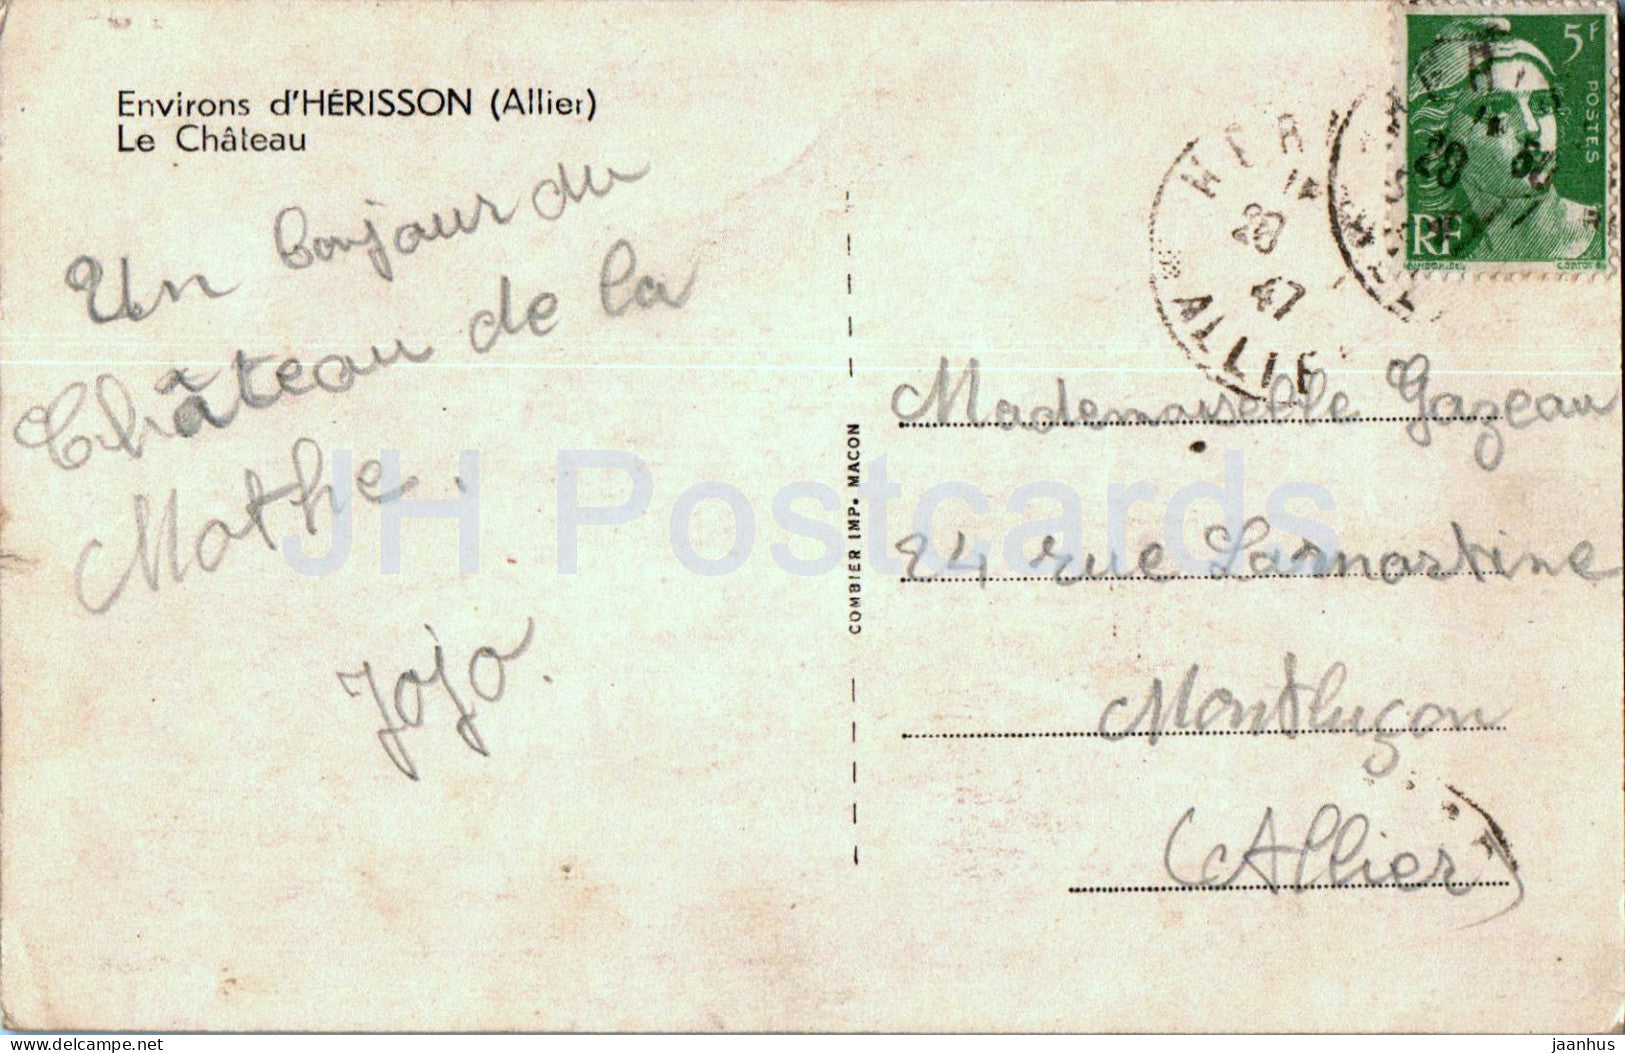 Environs d'HÉRISSON (Allier)
Le Château
Un bonjour du
Château de la
Mathe.
Jojo.
COMBIER IMP. MACON
5F
POSTES
RF
28
47
ALLIER
Mademoiselle Gazeau
24 rue Lamartine
Montluçon
(Allier)
JH Postcards
delcampe.net
jaanhus